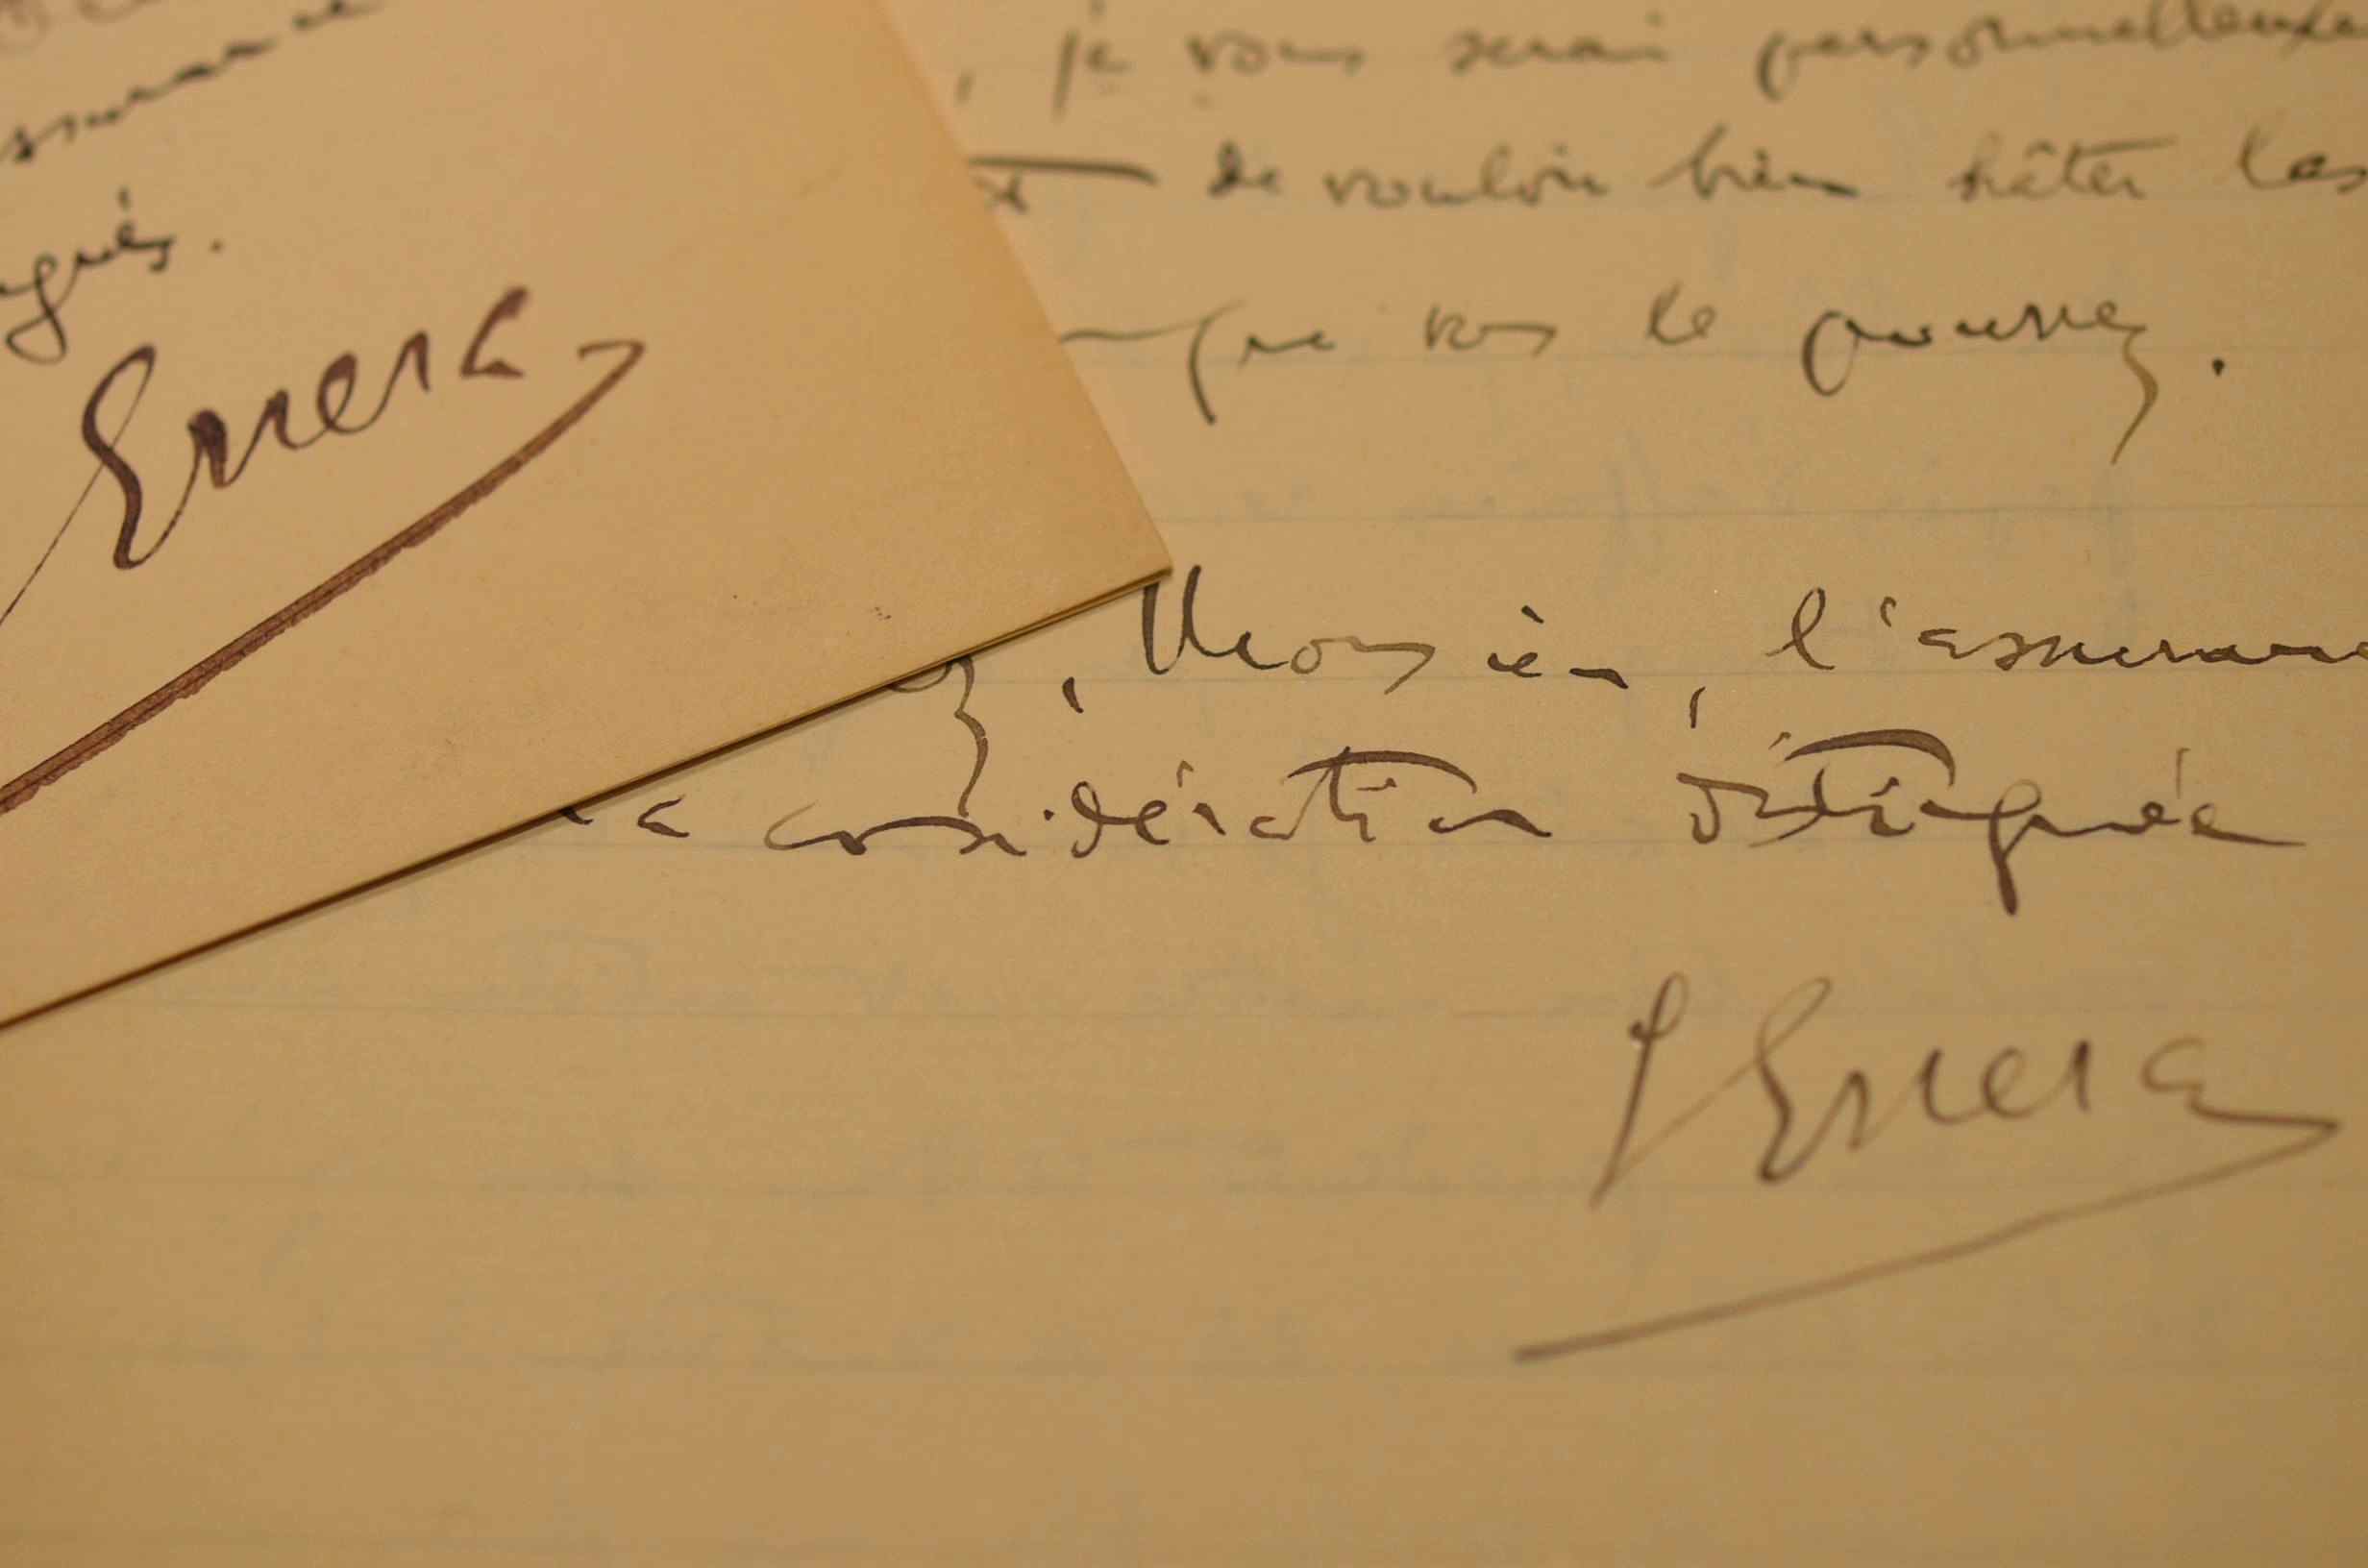 ssurance
ngués.
Errera
, je vous serai personnellement
de vouloir bien hâter les
que vous le pourrez.
, Monsieur, l'assurance
considération distinguée
Errera